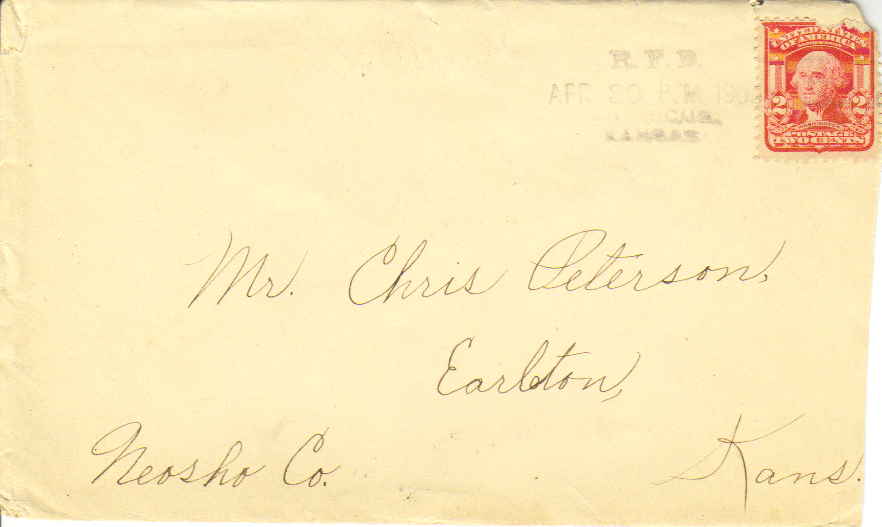 R. F. D.
APR
KANSAS
UNITED STATES
OF AMERICA
2 2
POSTAGE
TWO CENTS
Mr. Chris Peterson,
Earlton,
Neosho Co. Kans.